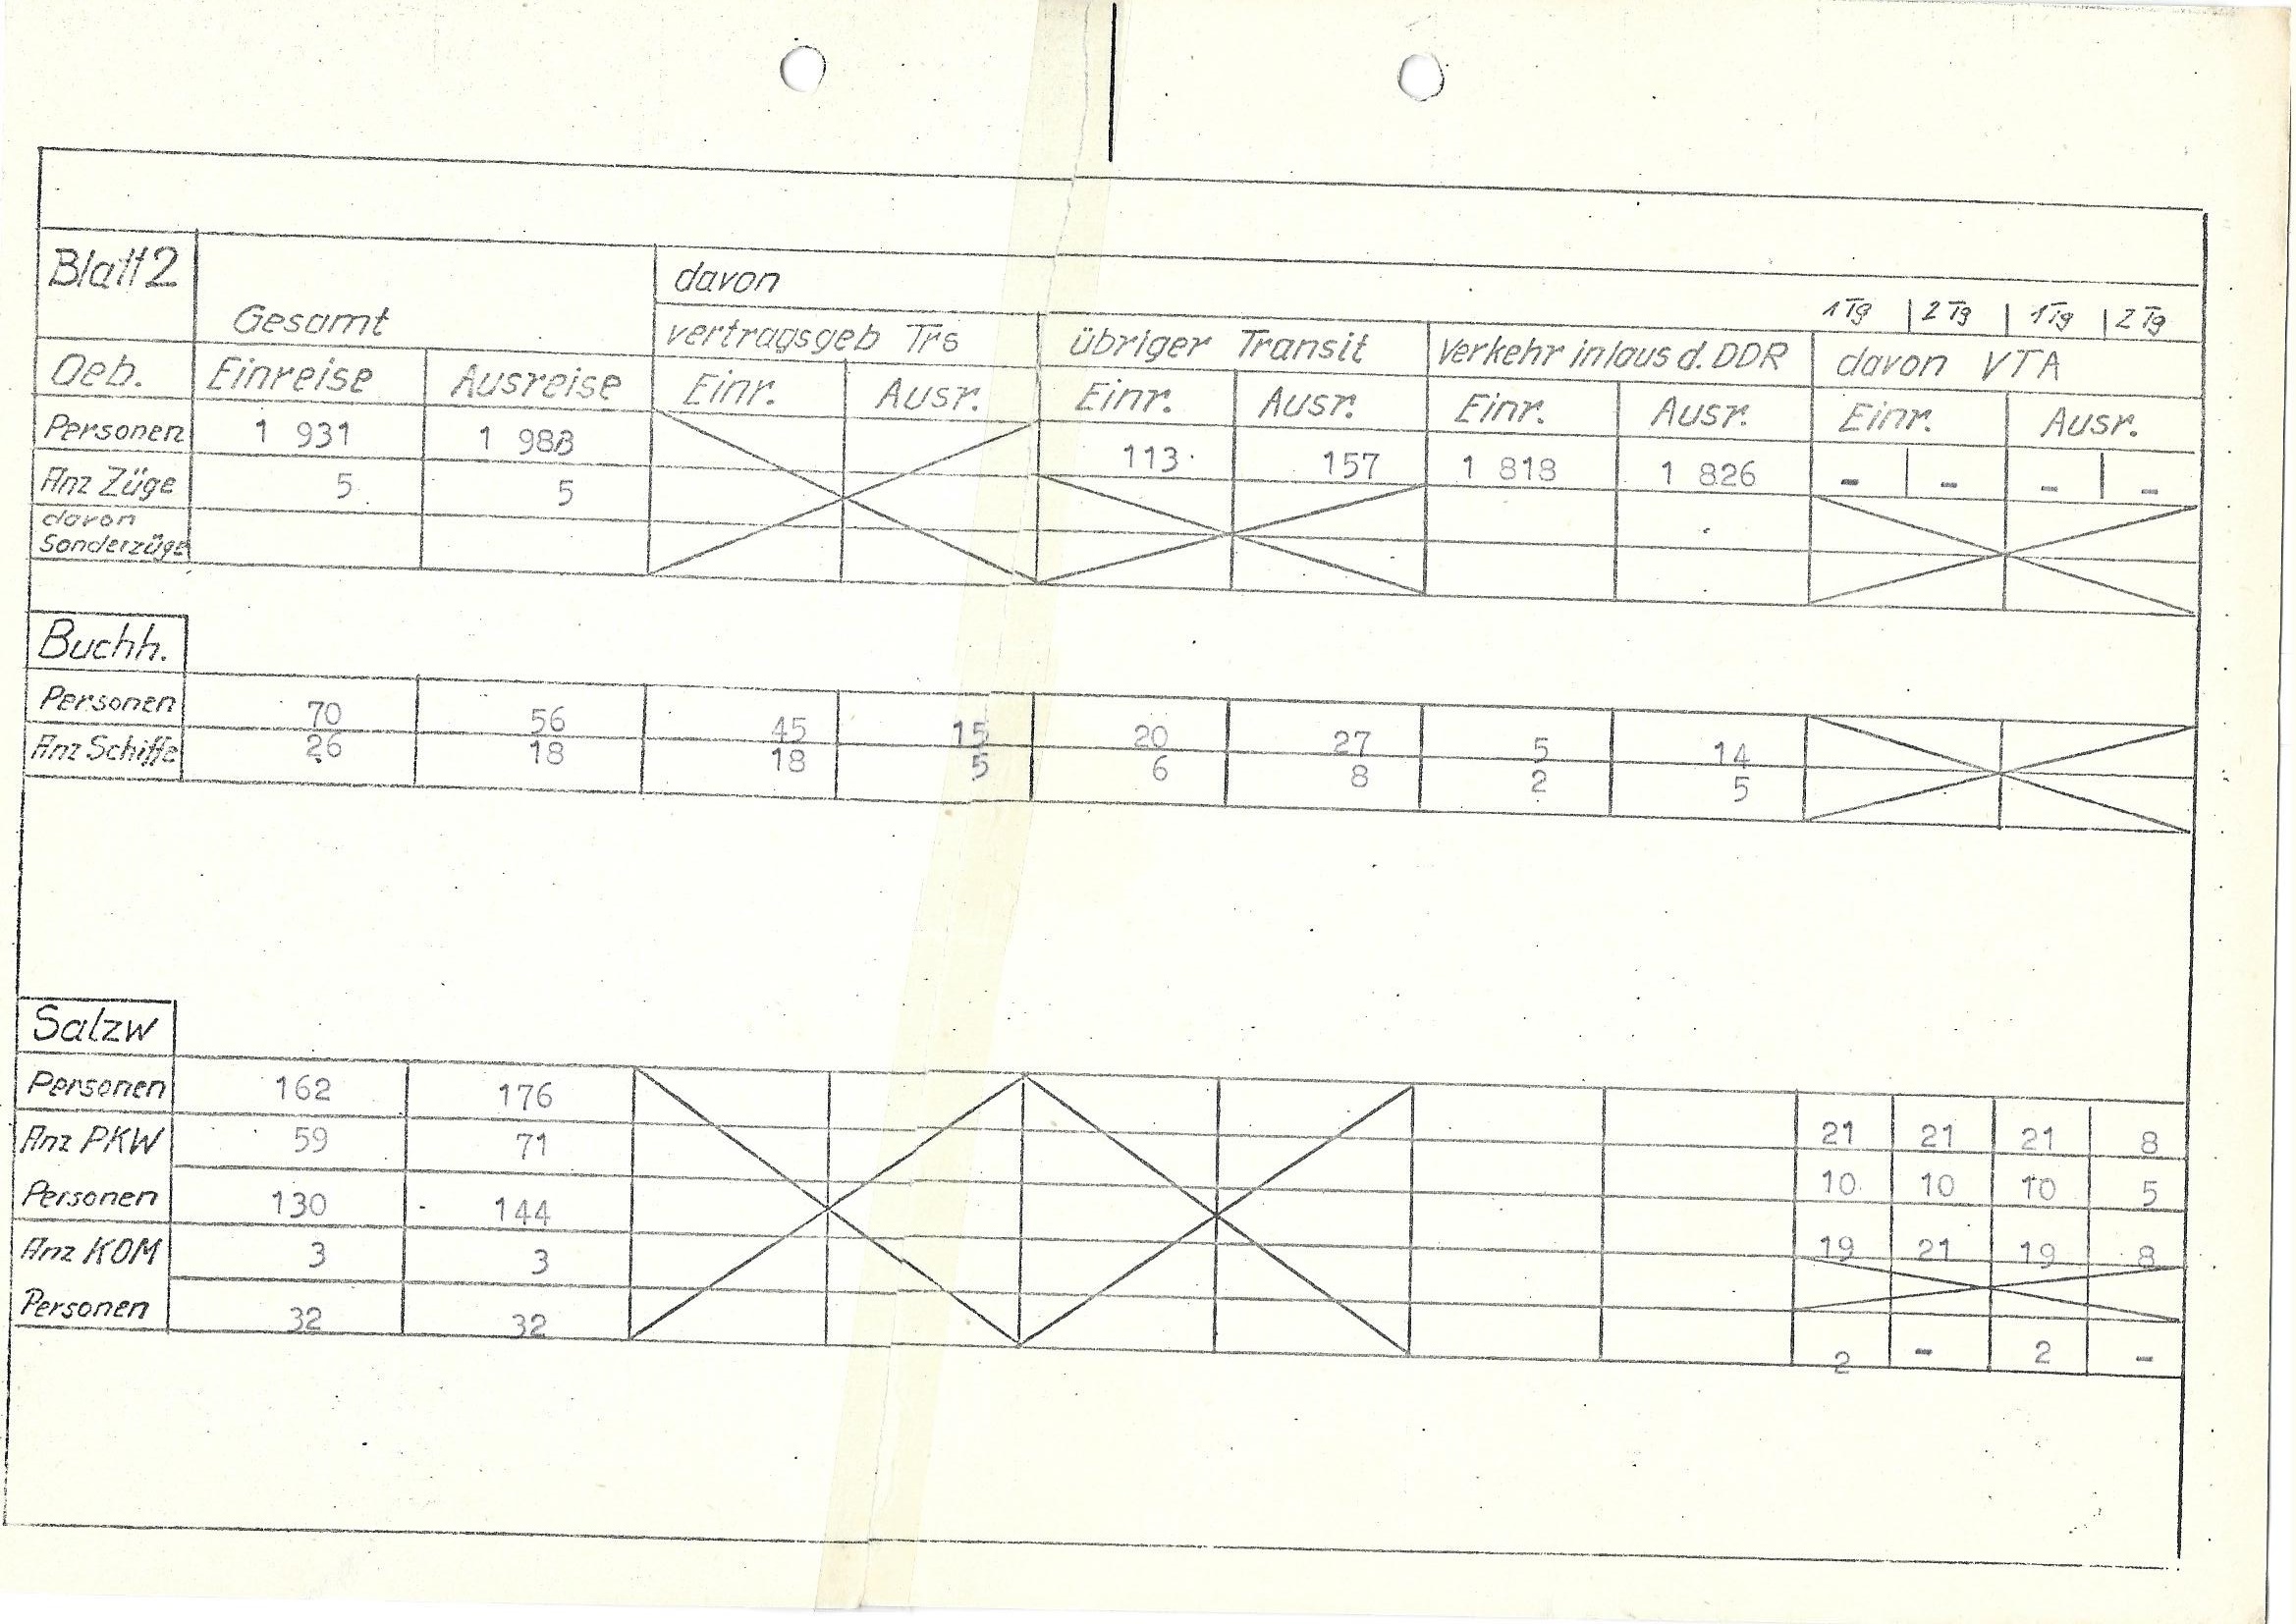 Blatt 2
davon
1 Tg | 2 Tg | 1 Tg | 2 Tg
Gesamt
vertragsgeb Trs übriger Transit Verkehr in/aus d. DDR davon VTA
Oeb. Einreise Ausreise Einr. Ausr. Einr. Ausr. Einr. Ausr. Einr. Ausr.
Personen 1 931 1 983 113 157 1 818 1 826 - - - -
Anz Züge 5 5
davon
Sonderzüge
Buchh.
Personen 70 56 45 15 20 27 5 14
Anz Schiffe 26 18 18 5 6 8 2 5
Salzw
Personen 162 176 21 21 21 8
Anz PKW 59 71 10 10 10 5
Personen 130 144 19 21 19 8
Anz KOM 3 3
Personen 32 32 2 - 2 -